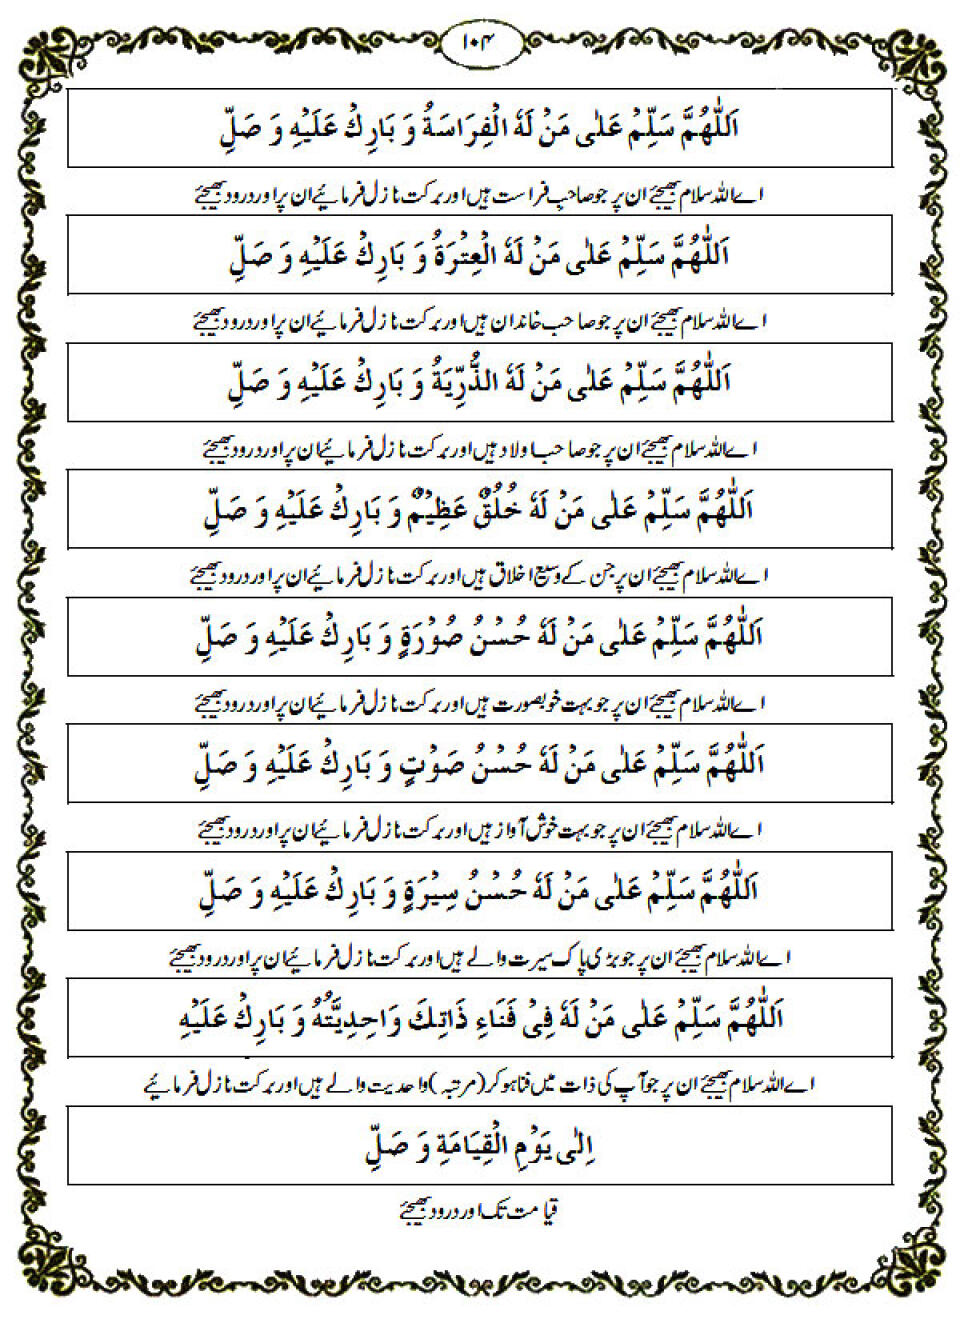 ۱۰۴
اَللّٰهُمَّ سَلِّمْ عَلٰى مَنْ لَهٗ الْفِرَاسَةُ وَ بَارِكْ عَلَيْهِ وَ صَلِّ
اے اللہ سلام بھیجئے ان پر جو صاحبِ فراست ہیں اور برکت نازل فرمائیے ان پر اور درود بھیجئے
اَللّٰهُمَّ سَلِّمْ عَلٰى مَنْ لَهٗ الْعِتْرَةُ وَ بَارِكْ عَلَيْهِ وَ صَلِّ
اے اللہ سلام بھیجئے ان پر جو صاحب خاندان ہیں اور برکت نازل فرمائیے ان پر اور درود بھیجئے
اَللّٰهُمَّ سَلِّمْ عَلٰى مَنْ لَهٗ الذُّرِّيَةُ وَ بَارِكْ عَلَيْهِ وَ صَلِّ
اے اللہ سلام بھیجئے ان پر جو صاحب اولاد ہیں اور برکت نازل فرمائیے ان پر اور درود بھیجئے
اَللّٰهُمَّ سَلِّمْ عَلٰى مَنْ لَهٗ خُلُقٌ عَظِيْمٌ وَ بَارِكْ عَلَيْهِ وَ صَلِّ
اے اللہ سلام بھیجئے ان پر جن کے وسیع اخلاق ہیں اور برکت نازل فرمائیے ان پر اور درود بھیجئے
اَللّٰهُمَّ سَلِّمْ عَلٰى مَنْ لَهٗ حُسْنُ صُوْرَةٍ وَ بَارِكْ عَلَيْهِ وَ صَلِّ
اے اللہ سلام بھیجئے ان پر جو بہت خوبصورت ہیں اور برکت نازل فرمائیے ان پر اور درود بھیجئے
اَللّٰهُمَّ سَلِّمْ عَلٰى مَنْ لَهٗ حُسْنُ صَوْتٍ وَ بَارِكْ عَلَيْهِ وَ صَلِّ
اے اللہ سلام بھیجئے ان پر جو بہت خوش آواز ہیں اور برکت نازل فرمائیے ان پر اور درود بھیجئے
اَللّٰهُمَّ سَلِّمْ عَلٰى مَنْ لَهٗ حُسْنُ سِيْرَةٍ وَ بَارِكْ عَلَيْهِ وَ صَلِّ
اے اللہ سلام بھیجئے ان پر جو بڑی پاک سیرت والے ہیں اور برکت نازل فرمائیے ان پر اور درود بھیجئے
اَللّٰهُمَّ سَلِّمْ عَلٰى مَنْ لَهٗ فِىْ فَنَاءِ ذَاتِكَ وَاحِدِيَّتُهٗ وَ بَارِكْ عَلَيْهِ
اے اللہ سلام بھیجئے ان پر جو آپ کی ذات میں فنا ہو کر (مرتبہ) واحدیت والے ہیں اور برکت نازل فرمائیے
اِلٰى يَوْمِ الْقِيَامَةِ وَ صَلِّ
قیامت تک اور درود بھیجئے